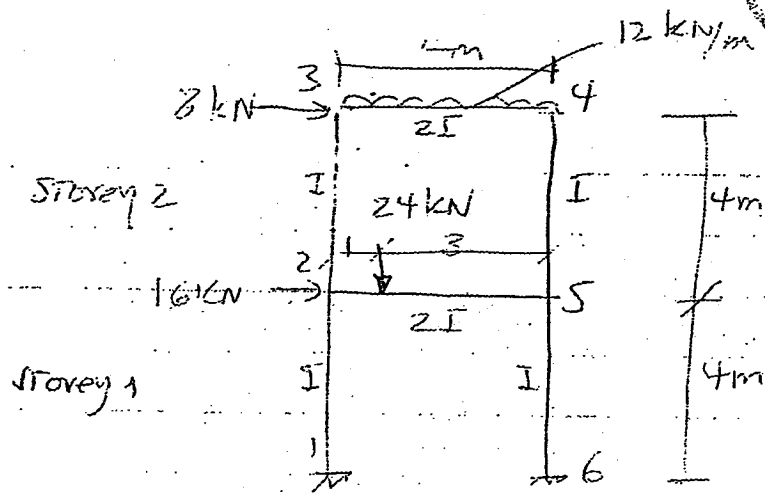 12 kN/m
3
4
8 kN
2I
Storey 2
I
I
24 kN
4m
1
3
2
16 kN
5
2I
Storey 1
I
I
4m
1
6